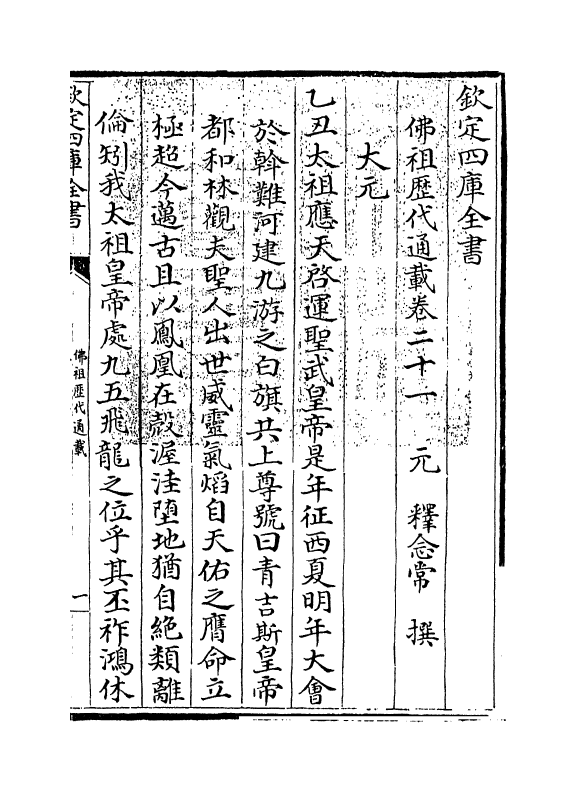 欽定四庫全書
佛祖歴代通載卷二十一　元　釋念常　撰
大元
乙丑太祖應天啓運聖武皇帝是年征西夏明年大會
於斡難河建九游之白旗共上尊號曰青吉斯皇帝
都和林觀夫聖人出世威靈氣焰自天佑之膺命立
極超今邁古且以鳳凰在鷇渥洼墮地猶自絶類離
倫矧我太祖皇帝處九五飛龍之位乎其丕祚鴻休
欽定四庫全書
佛祖歴代通載
一